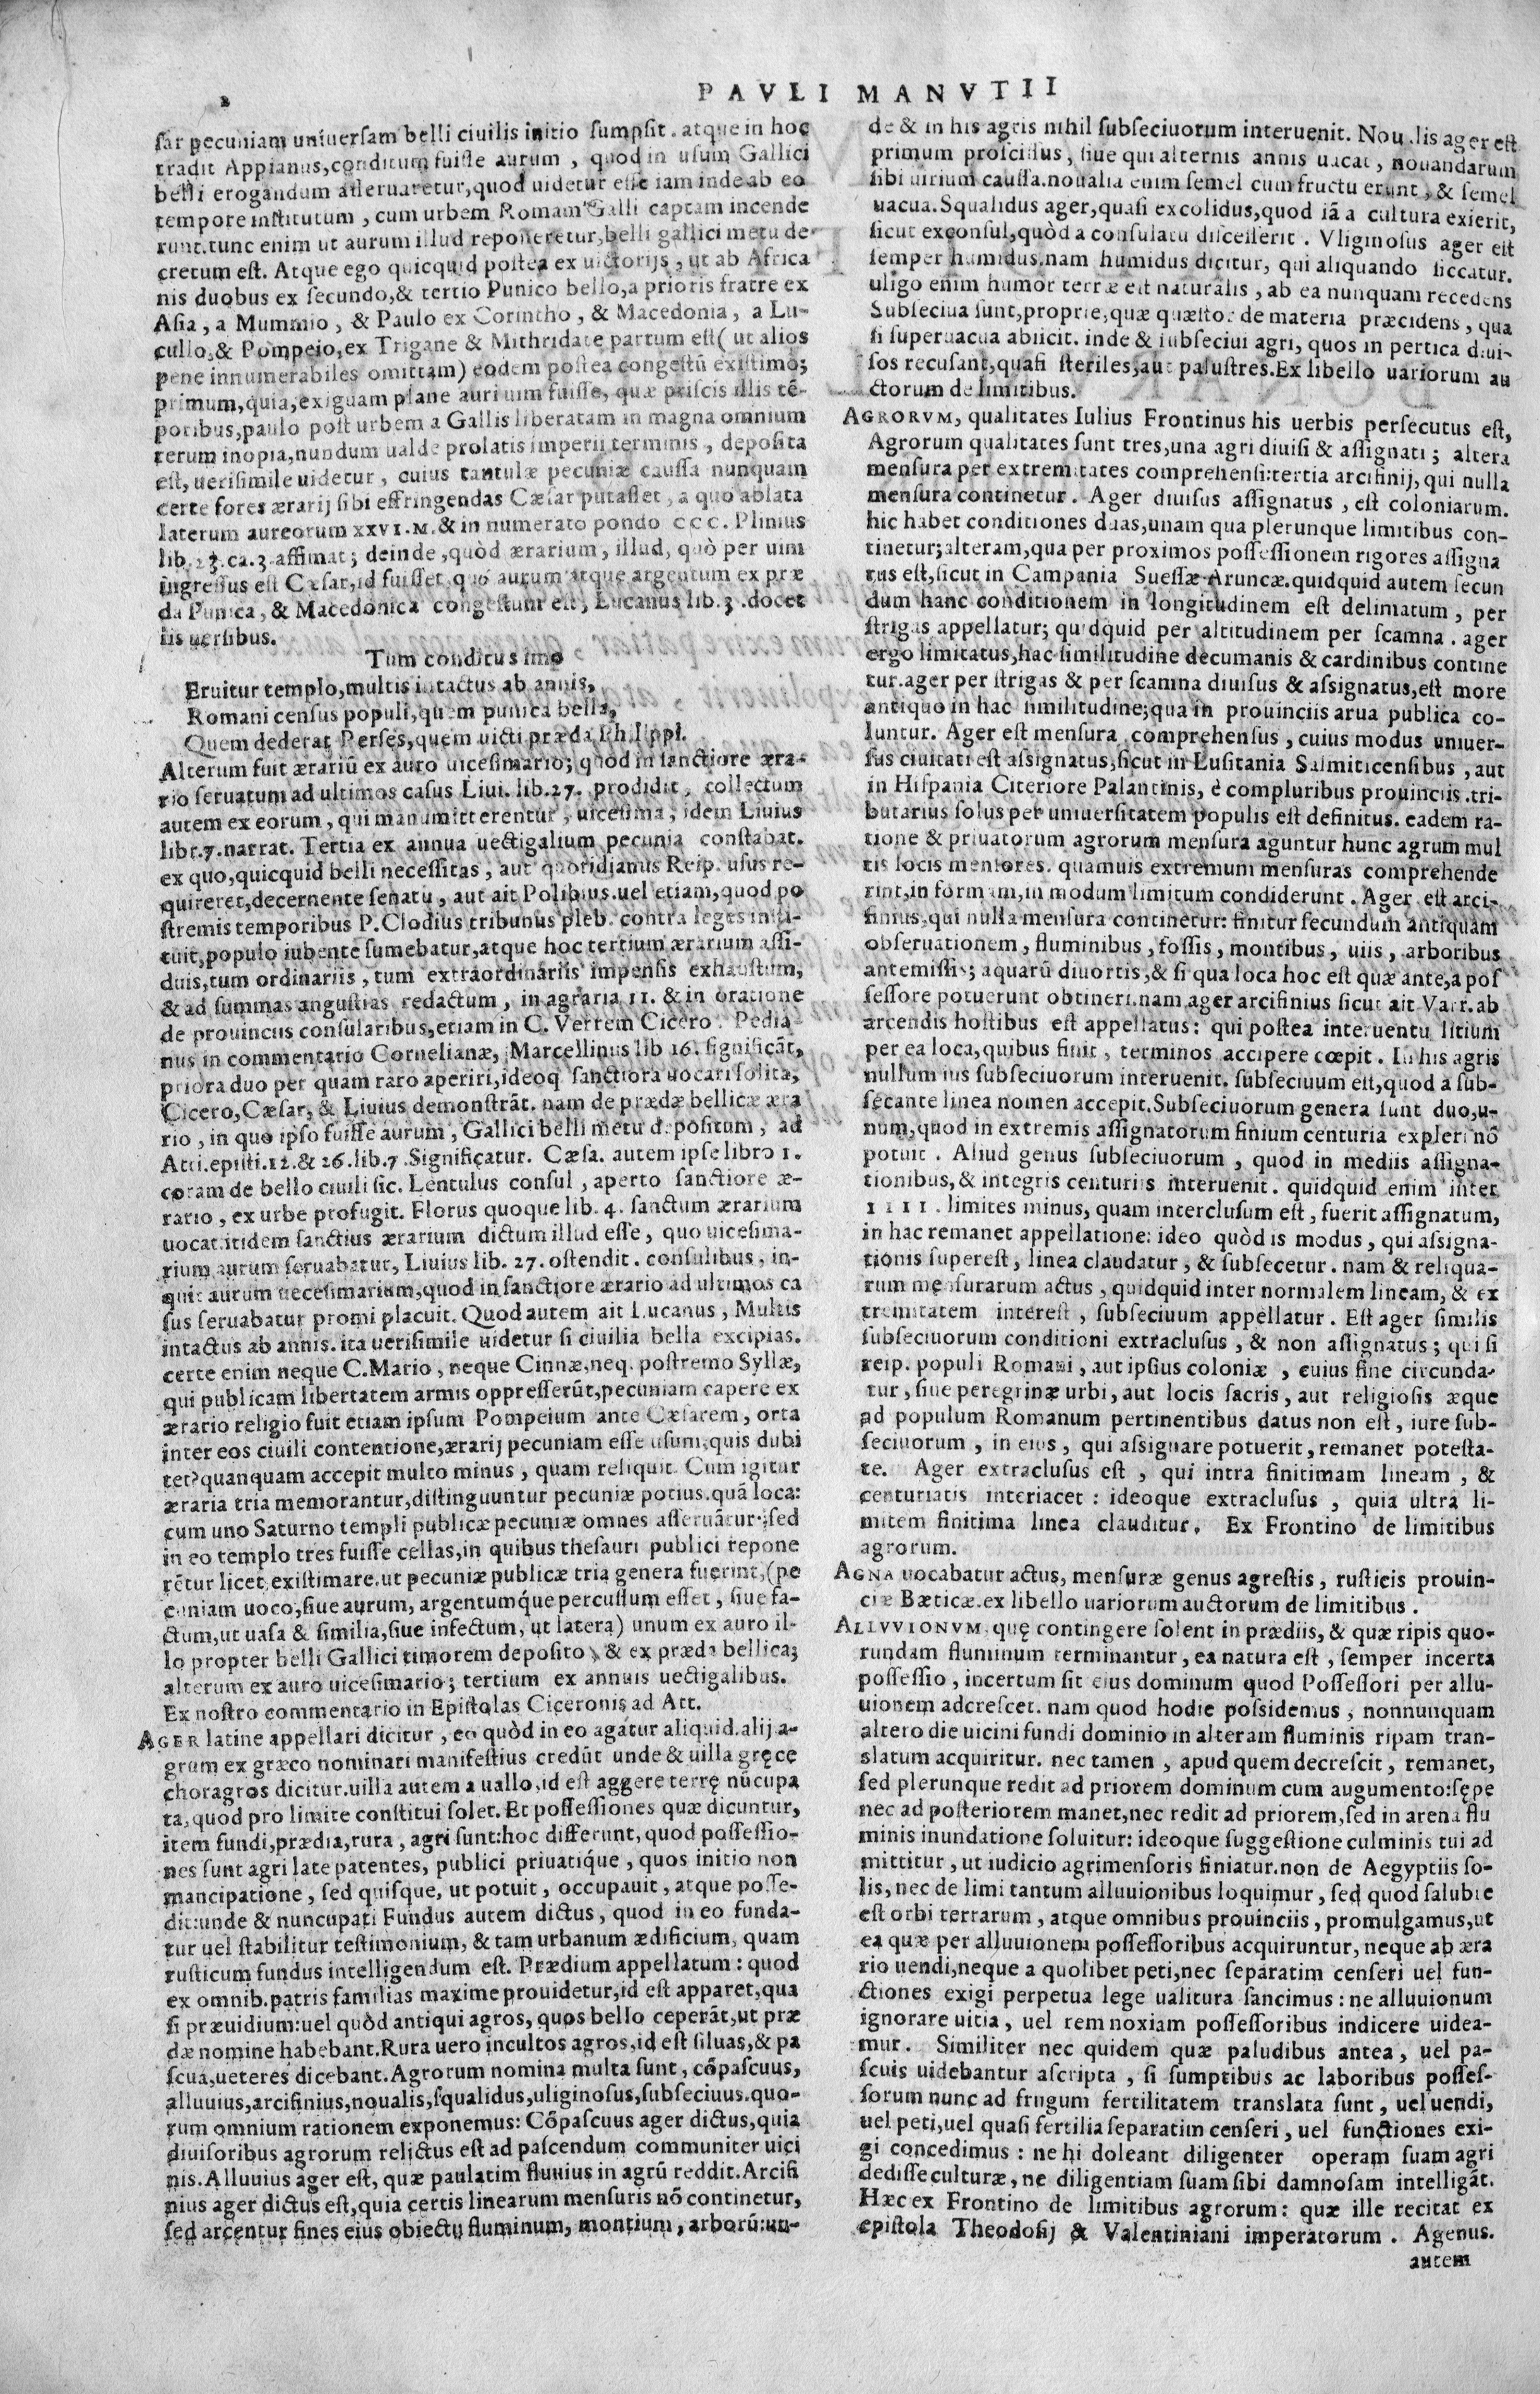 2
PAVLI MANVTII
sar pecuniam uniuersam belli ciuilis initio sumpsit. atque in hoc
tradit Appianus, conditum fuisse aurum, quod in usum Gallici
belli erogandum asseruaretur, quod uidetur esse iam inde ab eo
tempore institutum, cum urbem Romam Galli captam incende
runt. tunc enim ut aurum illud reponeretur, belli gallici metu de-
cretum est. Atque ego quicquid postea ex uictorijs, ut ab Africa
nis duobus ex secundo, & tertio Punico bello, a prioris fratre ex
Asia, a Mummio, & Paulo ex Corintho, & Macedonia, a Lu-
cullo, & Pompeio, ex Trigane & Mithridate partum est (ut alios
pene innumerabiles omittam) eodem postea congestū existimo;
primum, quia, exiguam plane auri uim fuisse, quæ priscis illis tē-
poribus, paulo post urbem a Gallis liberatam in magna omnium
rerum inopia, nundum ualde prolatis imperii terminis, deposita
est, uerisimile uidetur, cuius tantulæ pecuniæ caussa nunquam
certe fores ærarij sibi effringendas Cæsar putasset, a quo ablata
laterum aureorum XXVI.M. & in numerato pondo CCC. Plinius
lib. 23. ca. 3. affimat; deinde, quòd ærarium, illud, quò per uim
ingressus est Cæsar, id fuisset, quo aurum atque argentum ex præ
da Punica, & Macedonica congestum est, Lucanus lib. 3. docet
iis uersibus.
Tum conditus imo
Eruitur templo, multis intactus ab annis,
Romani census populi, quem punica bella,
Quem dederat Perses, quem uicti præda Philippi.
Alterum fuit ærariū ex auro uicesimario; quod in sanctiore æra-
rio seruatum ad ultimos casus Liui. lib. 27. prodidit, collectum
autem ex eorum, qui manumitterentur, uicesima, idem Liuius
libr. 7. narrat. Tertia ex annua uectigalium pecunia constabat.
ex quo, quicquid belli necessitas, aut quotidianus Reip. usus re-
quireret, decernente senatu, aut ait Polibius. uel etiam, quod po
stremis temporibus P. Clodius tribunus pleb. contra leges insti-
tuit, populo iubente sumebatur, atque hoc tertium ærarium assi-
duis, tum ordinariis, tum extraordinariis impensis exhaustum,
& ad summas angustias redactum, in agraria II. & in oratione
de prouinciis consularibus, etiam in C. Verrem Cicero. Pedia-
nus in commentario Cornelianæ, Marcellinus lib 16. significāt,
priora duo per quam raro aperiri, ideoq. sanctiora uocari solita,
Cicero, Cæsar, & Liuius demonstrāt. nam de prædæ bellicæ æra
rio, in quo ipso fuisse aurum, Gallici belli metu depositum, ad
Atti. epist. 12. & 26. lib. 7. Significatur. Cæsa. autem ipse libro 1.
coram de bello ciuili sic. Lentulus consul, aperto sanctiore æ-
rario, ex urbe profugit. Florus quoque lib. 4. sanctum ærarium
uocat. itidem sanctius ærarium dictum illud esse, quo uicesima-
rium aurum seruabatur, Liuius lib. 27. ostendit. consulibus, in-
quit aurum uecesimarium, quod in sanctiore ærario ad ultimos ca
sus seruabatur promi placuit. Quod autem ait Lucanus, Multis
intactus ab annis. ita uerisimile uidetur si ciuilia bella excipias.
certe enim neque C. Mario, neque Cinnæ, neq. postremo Syllæ,
qui publicam libertatem armis oppresserūt, pecuniam capere ex
ærario religio fuit etiam ipsum Pompeium ante Cæsarem, orta
inter eos ciuili contentione, ærarij pecuniam esse usum, quis dubi
tet? quanquam accepit multo minus, quam reliquit. Cum igitur
æraria tria memorantur, distinguuntur pecuniæ potius. quā loca:
cum uno Saturno templi publicæ pecuniæ omnes asseruātur: sed
in eo templo tres fuisse cellas, in quibus thesauri publici repone
rētur licet existimare. ut pecuniæ publicæ tria genera fuerint, (pe
cuniam uoco, siue aurum, argentumq́ue percussum esset, siue fa-
ctum, ut uasa & similia, siue infectum, ut latera) unum ex auro il-
lo propter belli Gallici timorem deposito, & ex præda bellica;
alterum ex auro uicesimario; tertium ex annuis uectigalibus.
Ex nostro commentario in Epistolas Ciceronis ad Att.
AGER latine appellari dicitur, eo quòd in eo agatur aliquid. alij a-
grum ex græco nominari manifestius credūt unde & uilla gręcę
choragros dicitur. uilla autem a uallo, id est aggere terrę nūcupa
ta, quod pro limite constitui solet. Et possessiones quæ dicuntur,
item fundi, prædia, rura, agri sunt: hoc differunt, quod possessio-
nes sunt agri late patentes, publici priuatiq́ue, quos initio non
mancipatione, sed quisque, ut potuit, occupauit, atque posse-
dit: unde & nuncupati Fundus autem dictus, quod in eo funda-
tur uel stabilitur testimonium, & tam urbanum ædificium, quam
rusticum fundus intelligendum est. Prædium appellatum: quod
ex omnib. patris familias maxime prouidetur, id est apparet, qua
si præuidium: uel quòd antiqui agros, quos bello ceperāt, ut præ
dæ nomine habebant. Rura uero incultos agros, id est siluas, & pa
scua, ueteres dicebant. Agrorum nomina multa sunt, cōpascuus,
alluuius, arcifinius, noualis, squalidus, uliginosus, subseciuus. quo-
rum omnium rationem exponemus: Cōpascuus ager dictus, quia
diuisoribus agrorum relictus est ad pascendum communiter uici
nis. Alluuius ager est, quæ paulatim fluuius in agrū reddit. Arcifi
nius ager dictus est, quia certis linearum mensuris nō continetur,
sed arcentur fines eius obiectu fluminum, montium, arborū: un-
de & in his agris nihil subseciuorum interuenit. Noualis ager est
primum proscisus, siue qui alternis annis uacat, nouandarum
sibi uirium caussa. noualia enim semel cum fructu erunt, & semel
uacua. Squalidus ager, quasi excolidus, quod iā a cultura exierit,
sicut exconsul, quòd a consulatu discesserit. Vliginosus ager est
semper humidus. nam humidus dicitur, qui aliquando siccatur.
uligo enim humor terræ est naturalis, ab ea nunquam recedens
Subseciua sunt, proprie, quæ quæstor de materia præcidens, qua
si superuacua abiicit. inde & subseciui agri, quos in pertica diui-
sos recusant, quasi steriles, aut palustres. Ex libello uariorum au
ctorum de limitibus.
AGRORVM, qualitates Iulius Frontinus his uerbis persecutus est,
Agrorum qualitates sunt tres, una agri diuisi & assignati; altera
mensura per extremitates comprehensi: tertia arcifinij, qui nulla
mensura continetur. Ager diuisus assignatus, est coloniarum.
hic habet conditiones duas, unam qua plerunque limitibus con-
tinetur; alteram, qua per proximos possessionem rigores assigna
tus est, sicut in Campania Suessæ Aruncæ. quidquid autem secun
dum hanc conditionem in longitudinem est delimatum, per
strigas appellatur; quidquid per altitudinem per scamna. ager
ergo limitatus, hac similitudine decumanis & cardinibus contine
tur. ager per strigas & per scamna diuisus & assignatus, est more
antiquo in hac similitudine; qua in prouinciis arua publica co-
luntur. Ager est mensura comprehensus, cuius modus uniuer-
sus ciuitati est assignatus, sicut in Lusitania Salmiticensibus, aut
in Hispania Citeriore Palantinis, e compluribus prouinciis. tri-
butarius solus per uniuersitatem populis est definitus. eadem ra-
tione & priuatorum agrorum mensura aguntur hunc agrum mul
tis locis mensores. quamuis extremum mensuras comprehende
rint, in formam, in modum limitum condiderunt. Ager est arci-
finius, qui nulla mensura continetur: finitur secundum antiquam
obseruationem, fluminibus, fossis, montibus, uiis, arboribus
antemissis; aquarū diuortis, & si qua loca hoc est quæ ante, a pos
sessore potuerunt obtineri. nam ager arcifinius sicut ait Varr. ab
arcendis hostibus est appellatus: qui postea interuentu litium
per ea loca, quibus finit, terminos accipere cœpit. In his agris
nullum ius subseciuorum interuenit. subseciuum est, quod a sub-
secante linea nomen accepit. Subseciuorum genera sunt duo, u-
num, quod in extremis assignatorum finium centuria expleri nō
potuit. Aliud genus subseciuorum, quod in mediis assigna-
tionibus, & integris centuriis interuenit. quidquid enim inter
IIII. limites minus, quam interclusum est, fuerit assignatum,
in hac remanet appellatione: ideo quòd is modus, qui assigna-
tionis superest, linea claudatur, & subsecetur. nam & reliqua-
rum mensurarum actus, quidquid inter normalem lineam, & ex
tremitatem interest, subseciuum appellatur. Est ager similis
subseciuorum conditioni extraclusus, & non assignatus; qui si
reip. populi Romani, aut ipsius coloniæ, cuius fine circunda-
tur, siue peregrinæ urbi, aut locis sacris, aut religiosis æque
ad populum Romanum pertinentibus datus non est, iure sub-
seciuorum, in eius, qui assignare potuerit, remanet potesta-
te. Ager extraclusus est, qui intra finitimam lineam, &
centuriatis interiacet: ideoque extraclusus, quia ultra li-
mitem finitima linea clauditur. Ex Frontino de limitibus
agrorum.
AGNA uocabatur actus, mensuræ genus agrestis, rusticis prouin-
ciæ Bæticæ. ex libello uariorum auctorum de limitibus.
ALLVVIONVM quę contingere solent in prædiis, & quæ ripis quo-
rundam fluminum terminantur, ea natura est, semper incerta
possessio, incertum sit eius dominum quod Possessori per allu-
uionem adcrescet. nam quod hodie possidemus, nonnunquam
altero die uicini fundi dominio in alteram fluminis ripam tran-
slatum acquiritur. nec tamen, apud quem decrescit, remanet,
sed plerunque redit ad priorem dominum cum augumento: sępe
nec ad posteriorem manet, nec redit ad priorem, sed in arena flu
minis inundatione soluitur: ideoque suggestione culminis tui ad
mittitur, ut iudicio agrimensoris finiatur. non de Aegyptiis so-
lis, nec de limi tantum alluuionibus loquimur, sed quod salubre
est orbi terrarum, atque omnibus prouinciis, promulgamus, ut
ea quæ per alluuionem possessoribus acquiruntur, neque ab æra
rio uendi, neque a quolibet peti, nec separatim censeri uel fun-
ctiones exigi perpetua lege ualitura sancimus: ne alluuionum
ignorare uitia, uel rem noxiam possessoribus indicere uidea-
mur. Similiter nec quidem quæ paludibus antea, uel pa-
scuis uidebantur ascripta, si sumptibus ac laboribus posses-
sorum nunc ad frugum fertilitatem translata sunt, uel uendi,
uel peti, uel quasi fertilia separatim censeri, uel functiones exi-
gi concedimus: ne hi doleant diligenter operam suam agri
dedisse culturæ, ne diligentiam suam sibi damnosam intelligāt.
Hæc ex Frontino de limitibus agrorum: quæ ille recitat ex
epistola Theodosij & Valentiniani imperatorum. Agenus.
autem